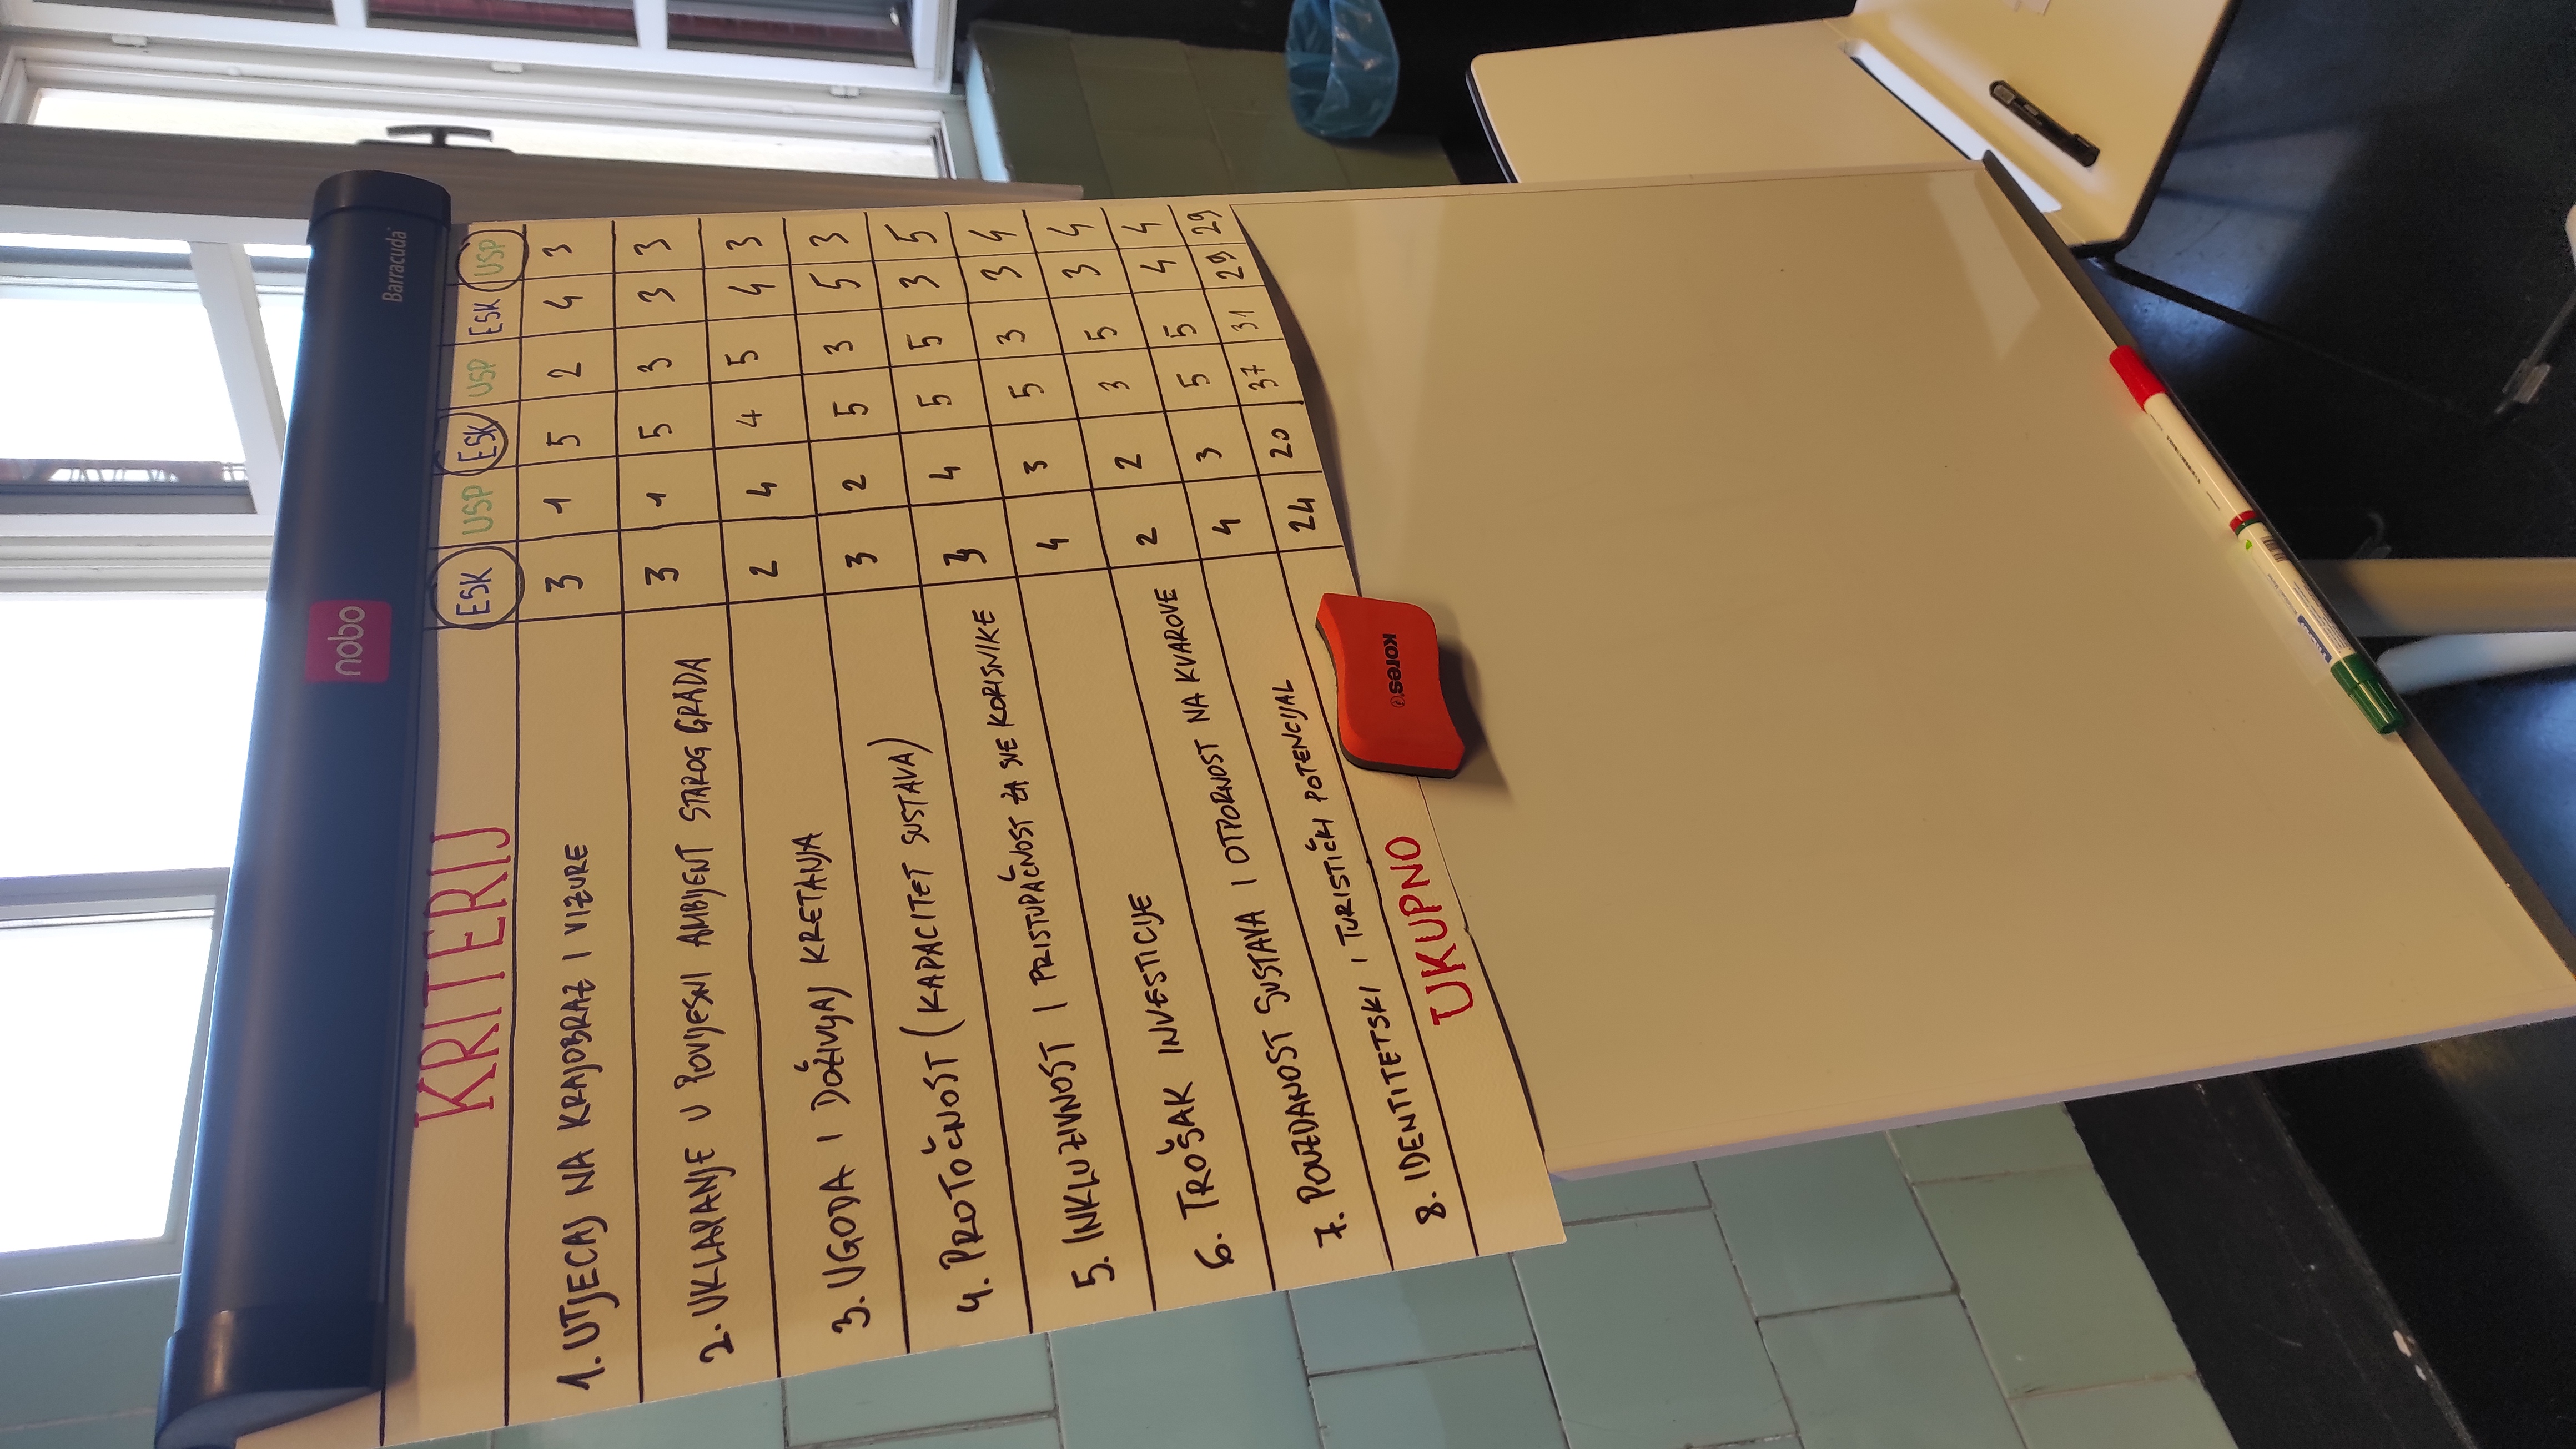 nobo
Barracuda
KRITERIJ ESK USP ESK USP ESK USP
1. UTJECAJ NA KRAJOBRAZ I VIZURE 3 1 5 2 4 3
2. UKLAPANJE U POVIJESNI AMBIJENT STAROG GRADA 3 1 5 3 3 3
3. UGODA I DOŽIVLJAJ KRETANJA 2 4 4 5 4 3
4. PROTOČNOST (KAPACITET SUSTAVA) 3 2 5 3 5 3
5. INKLUZIVNOST I PRISTUPAČNOST ZA SVE KORISNIKE 3 4 5 5 3 5
6. TROŠAK INVESTICIJE 4 3 5 3 3 4
7. POUZDANOST SUSTAVA I OTPORNOST NA KVAROVE 2 2 3 5 3 4
8. IDENTITETSKI I TURISTIČKI POTENCIJAL 4 3 5 5 4 4
UKUPNO 24 20 37 31 29 29
Kores®